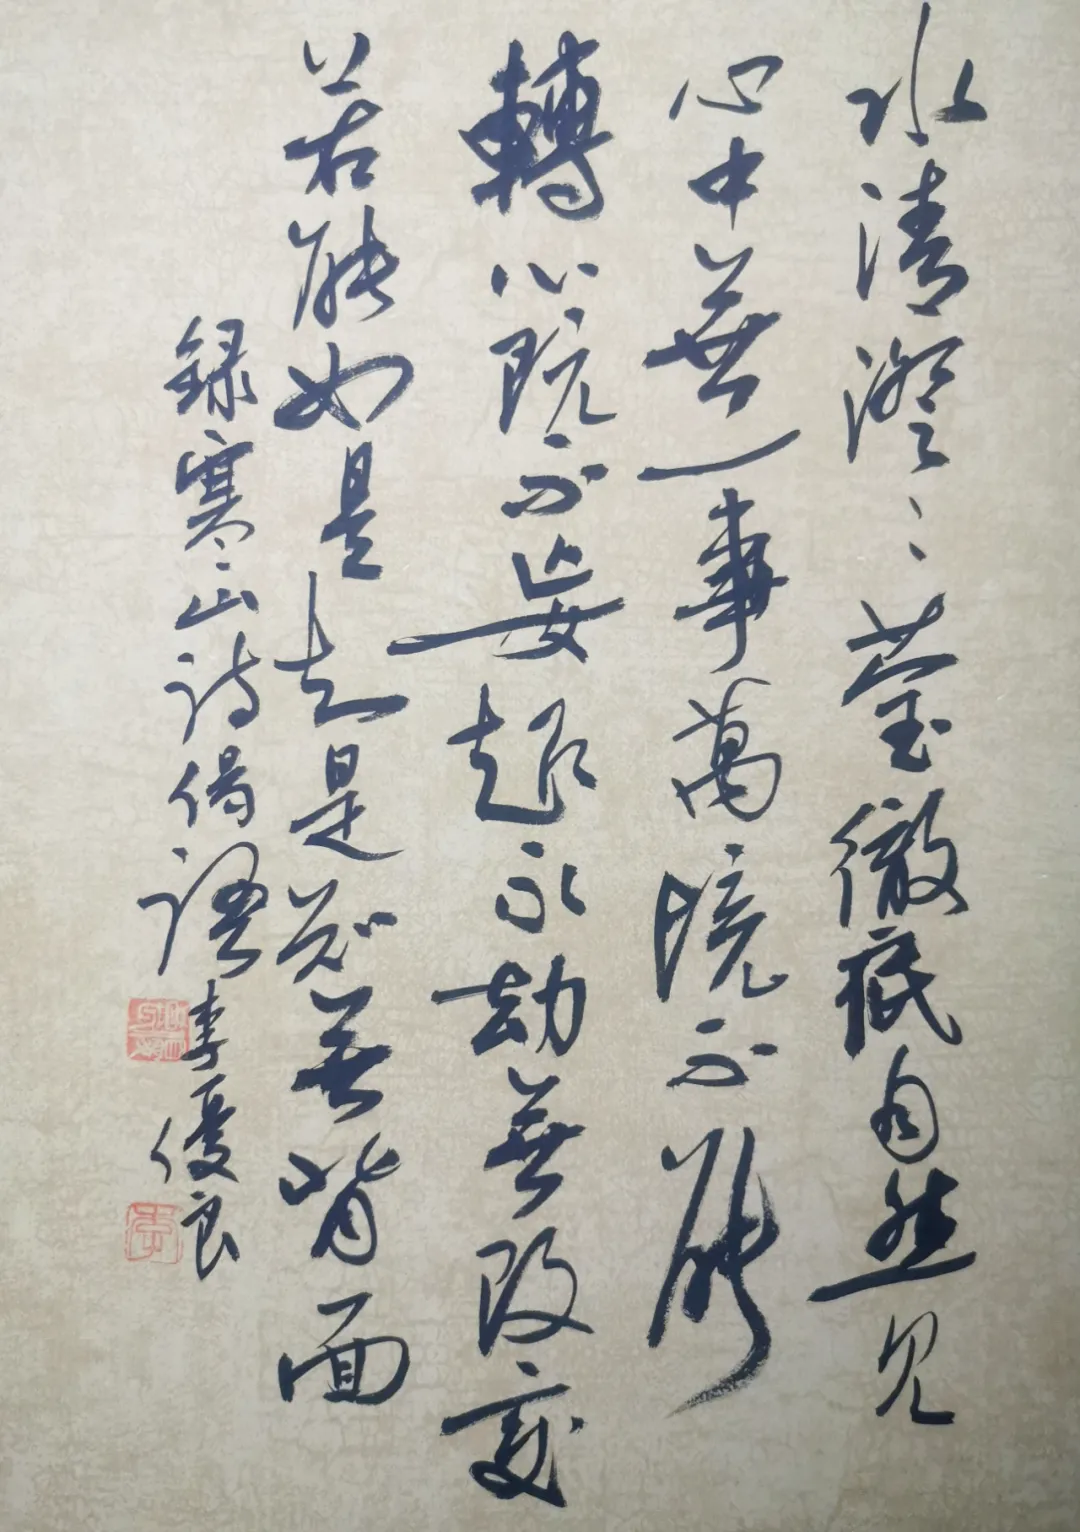 水清澄〻莹徹底自然見
心中無一事萬境不能
轉心既不妄起永劫無改變
若能如是是知無背面
録寒山詩偈語李優良